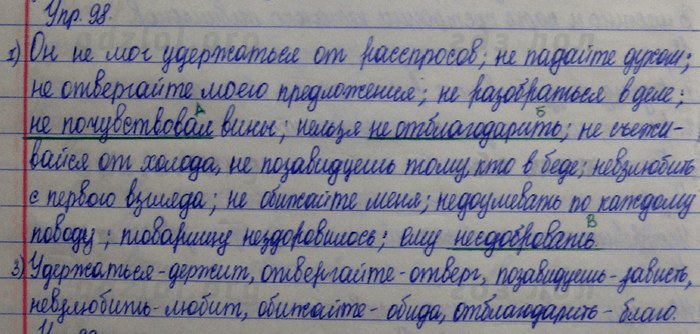 Упр. 98.
1) Он не мог удержаться от расспросов; не падайте духом;
не отвергайте моего предложения; не разобраться в деле;
не почувствовал вины; нельзя не отблагодарить; не съежи-
вайся от холода, не позавидуешь тому, кто в беде; невзлюбить
с первого взгляда; не обижайте меня; недоумевать по каждому
поводу; товарищу нездоровилось; ему несдобровать
3) Удержаться - держит, отвергайте - отверг, позавидуешь - зависть,
невзлюбить - любит, обижайте - обида, отблагодарить - благо.